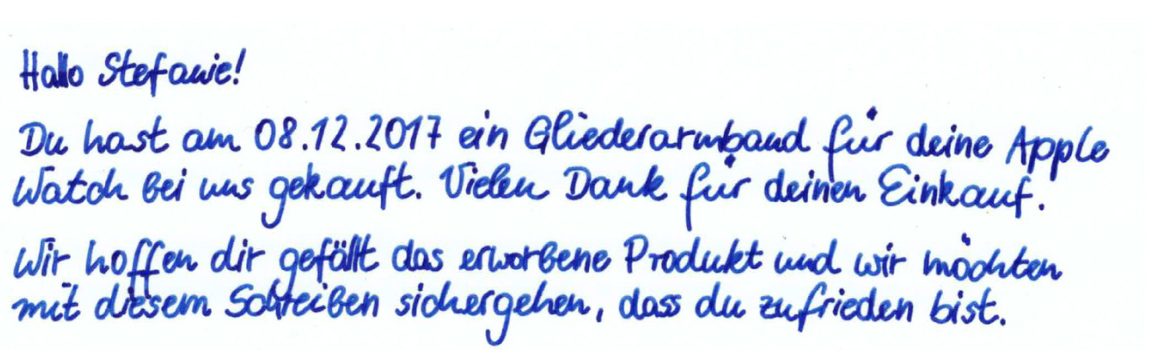 Hallo Stefanie!
Du hast am 08.12.2017 ein Gliederarmband für deine Apple
Watch bei uns gekauft. Vielen Dank für deinen Einkauf.
Wir hoffen dir gefällt das erworbene Produkt und wir möchten
mit diesem Schreiben sichergehen, dass du zufrieden bist.